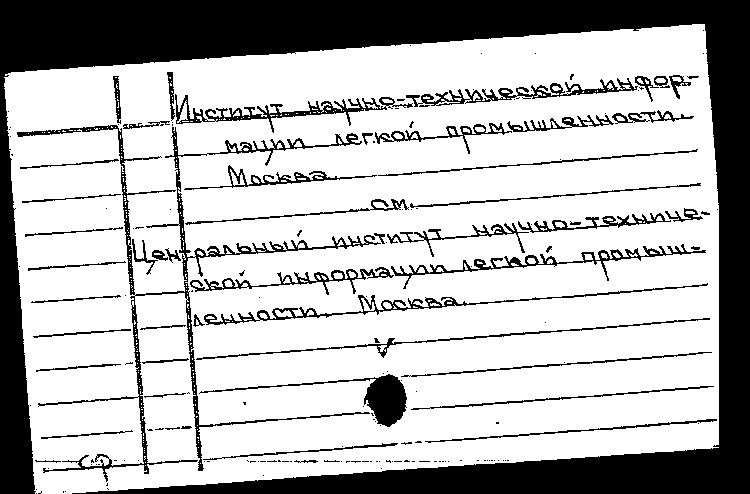 Институт научно-технической инфор-
мации легкой промышленности.
Москва.
см.
Центральный институт научно-техниче-
ской информации легкой промыш-
ленности. Москва.
V
ср